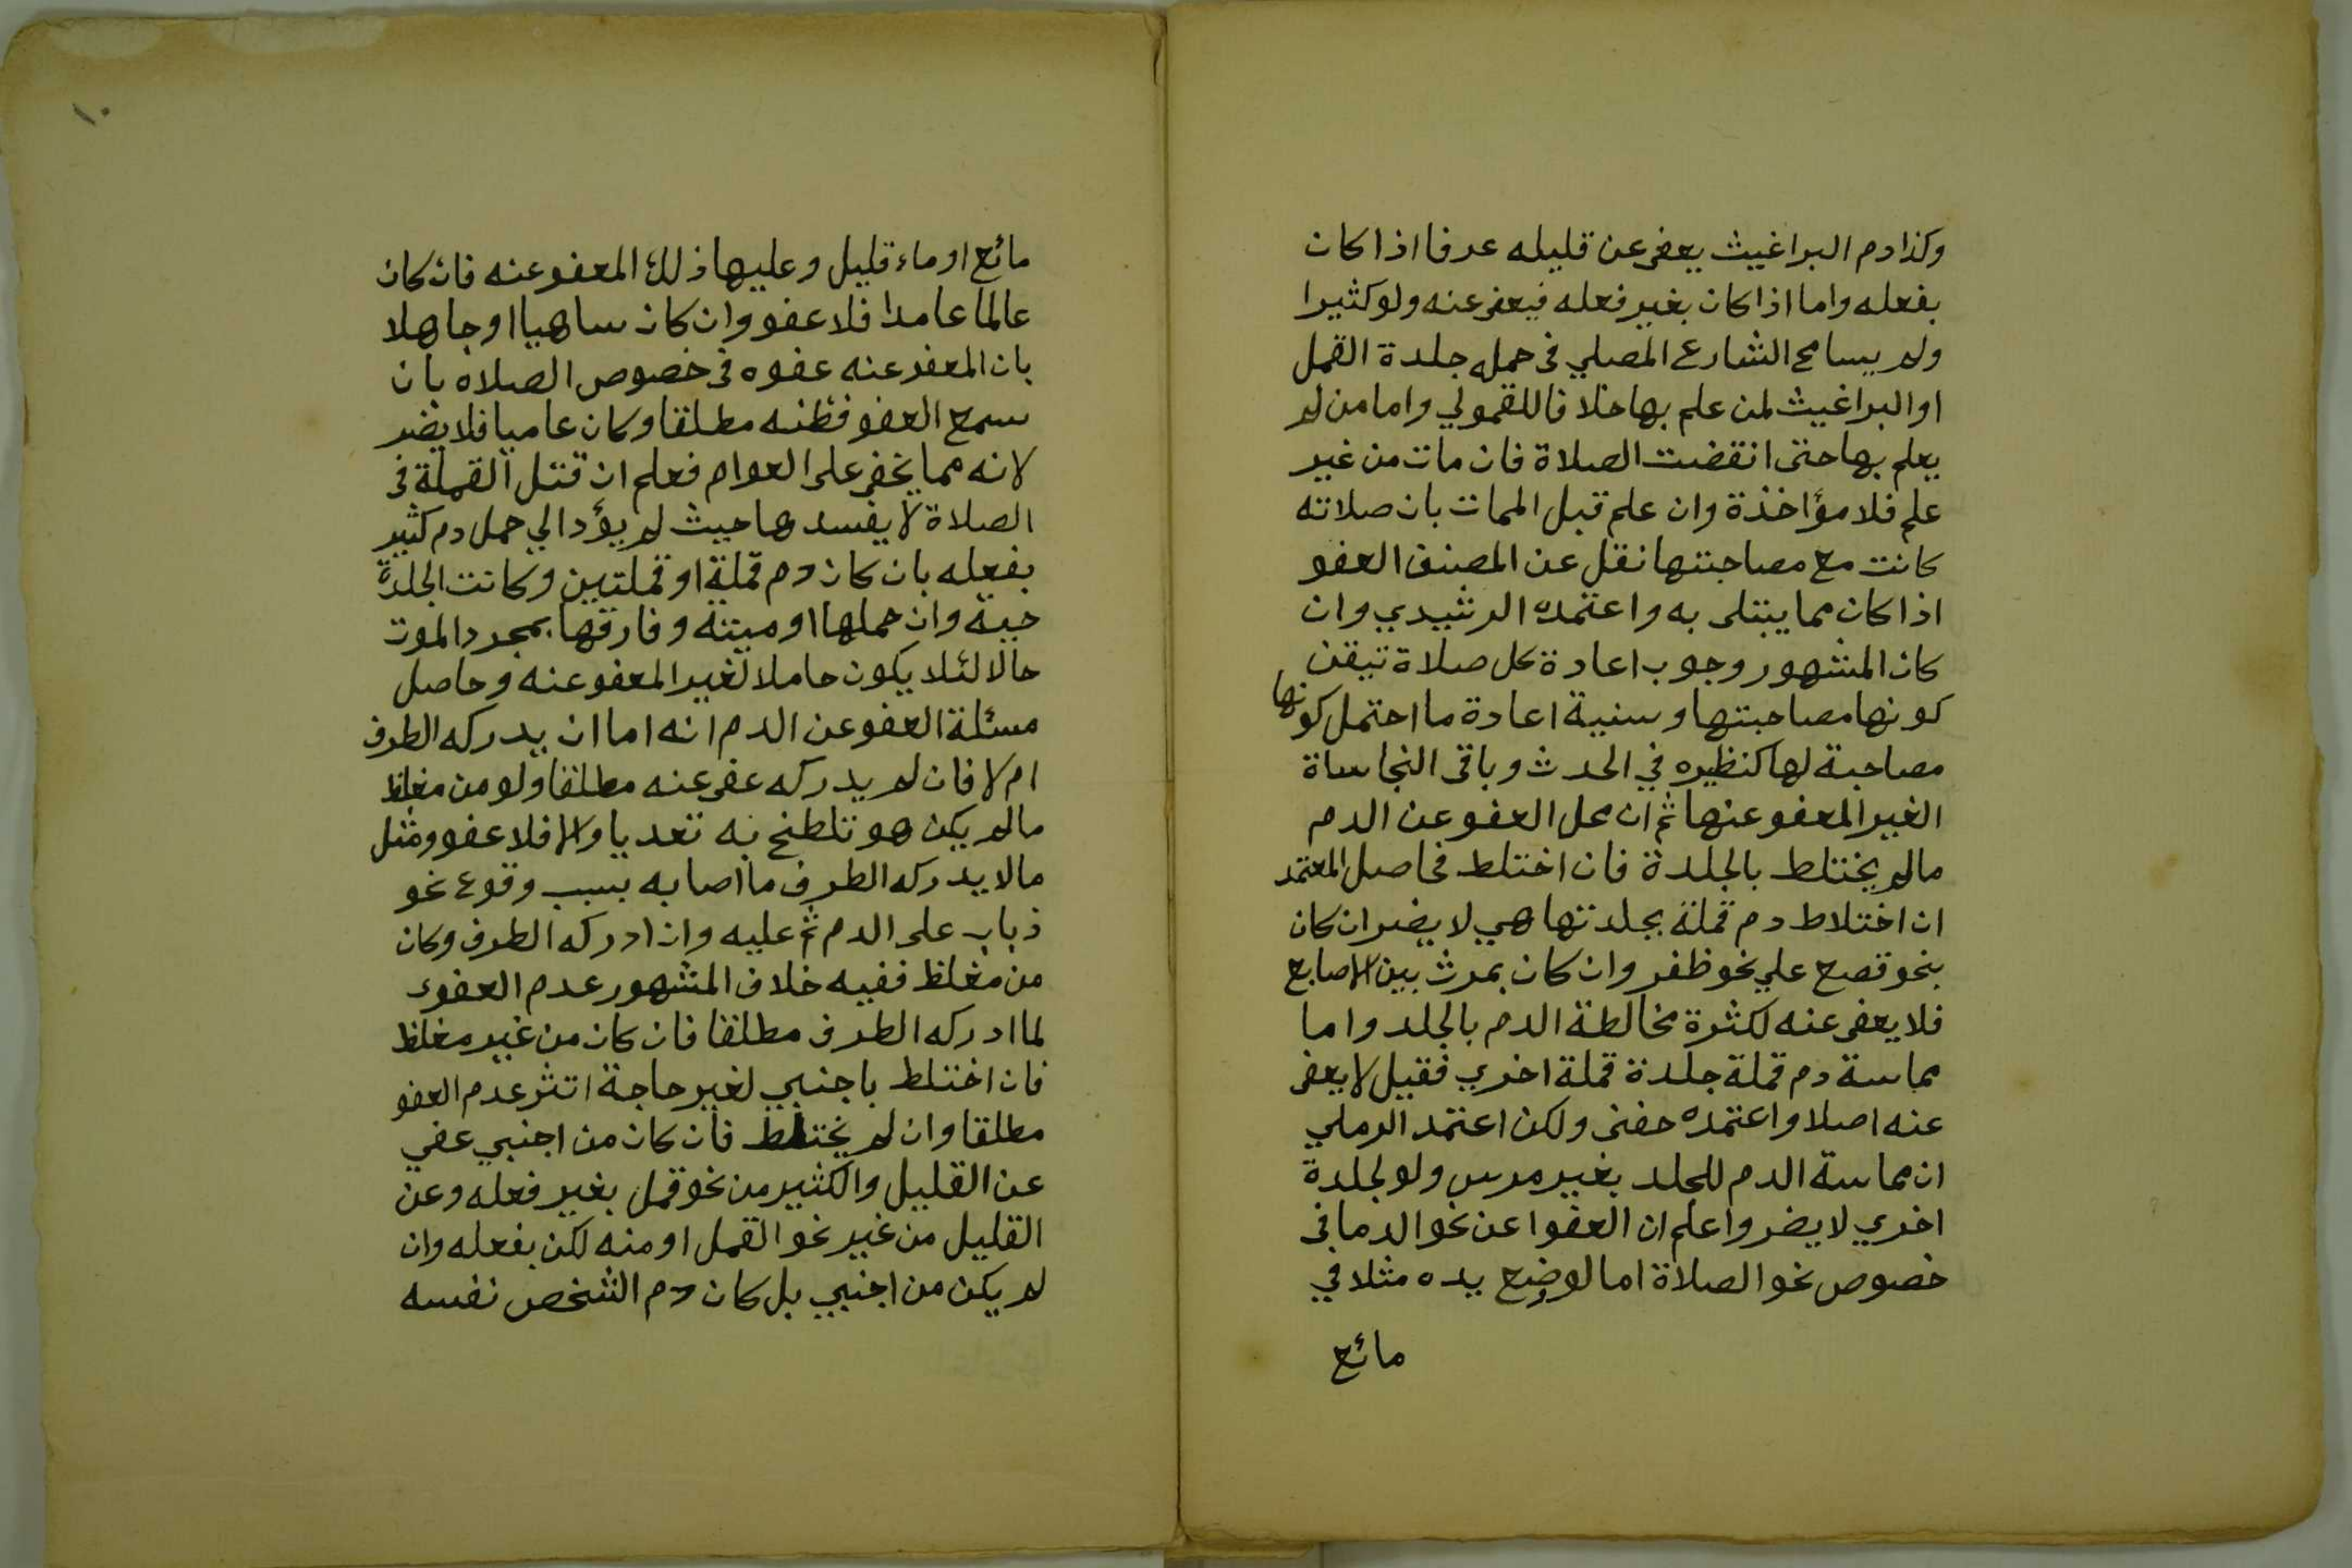 وكذا دم البراغيث يعفى عن قليله عرفا اذا كان
بفعله واما اذا كان بغير فعله فيعفى عنه ولو كثيرا
ولم يسامح الشارع المصلي فى حمله جلدة القمل
او البراغيث لمن علم بها خلافا للقمولي واما من لم
يعلم بها حتى انقضت الصلاة فان مات من غير
علم فلا مؤاخذة وان علم قبل الممات بان صلاته
كانت مع مصاحبتها نقل عن المصنف العفو
اذا كان مما يبتلى به واعتمده الرشيدي وان
كان المشهور وجوب اعادة كل صلاة تيقن
كونها مصاحبتها وسنية اعادة ما احتمل كونها
مصاحبة لها كنظيره في الحدث وباقى النجاساة
الغير المعفو عنها ثم ان محل العفو عن الدم
مالم يختلط بالجلدة فان اختلط فحاصل المعتمد
ان اختلاط دم قملة بجلدتها هي لا يضر ان كان
بنحو قصع علي نحو ظفر وان كان بمرث بين الاصابع
فلا يعفى عنه لكثرة مخالطة الدم بالجلد واما
مماسة دم قملة جلدة قملة اخري فقيل لا يعفى
عنه اصلا واعتمده حفنى ولكن اعتمد الرملي
ان مماسة الدم للجلد بغير مرس ولو لجلدة
اخري لا يضر واعلم ان العفوا عن نحو الدما فى
خصوص نحو الصلاة اما لو وضع يده مثلا في
مائع
١٠
مائع او ماء قليل وعليها ذلك المعفو عنه فان كان
عالما عامدا فلا عفو وان كان ساهيا او جاهلا
بان المعفو عنه عفوه فى خصوص الصلاه بان
سمع العفو فظنه مطلقا وكان عاميا فلا يضر
لانه مما يخفى على العوام فعلم ان قتل القملة فى
الصلاة لا يفسدها حيث لم يؤد الي حمل دم كثير
بفعله بان كان دم قملة او قملتين وكانت الجلدة
حية وان حملها او ميتة وفارقها بمجرد الموت
حالا لئلا يكون حاملا لغير المعفو عنه وحاصل
مسئلة العفو عن الدم انه اما ان يدركه الطرف
ام لا فان لم يدركه عفى عنه مطلقا ولو من مغلظ
مالم يكن هو تلطخ به تعديا والا فلا عفو ومثل
مالا يدركه الطرف ما اصابه بسبب وقوع نحو
ذباب على الدم ثم عليه وان ادركه الطرف وكان
من مغلظ ففيه خلاف المشهور عدم العفو
لما ادركه الطرف مطلقا فان كان من غير مغلظ
فان اختلط باجنبي لغير حاجة اتثر عدم العفو
مطلقا وان لم يختلط فان كان من اجنبي عفي
عن القليل والكثير من نحو قمل بغير فعله وعن
القليل من غير نحو القمل او منه لكن بفعله وان
لم يكن من اجنبي بل كان دم الشخص نفسه